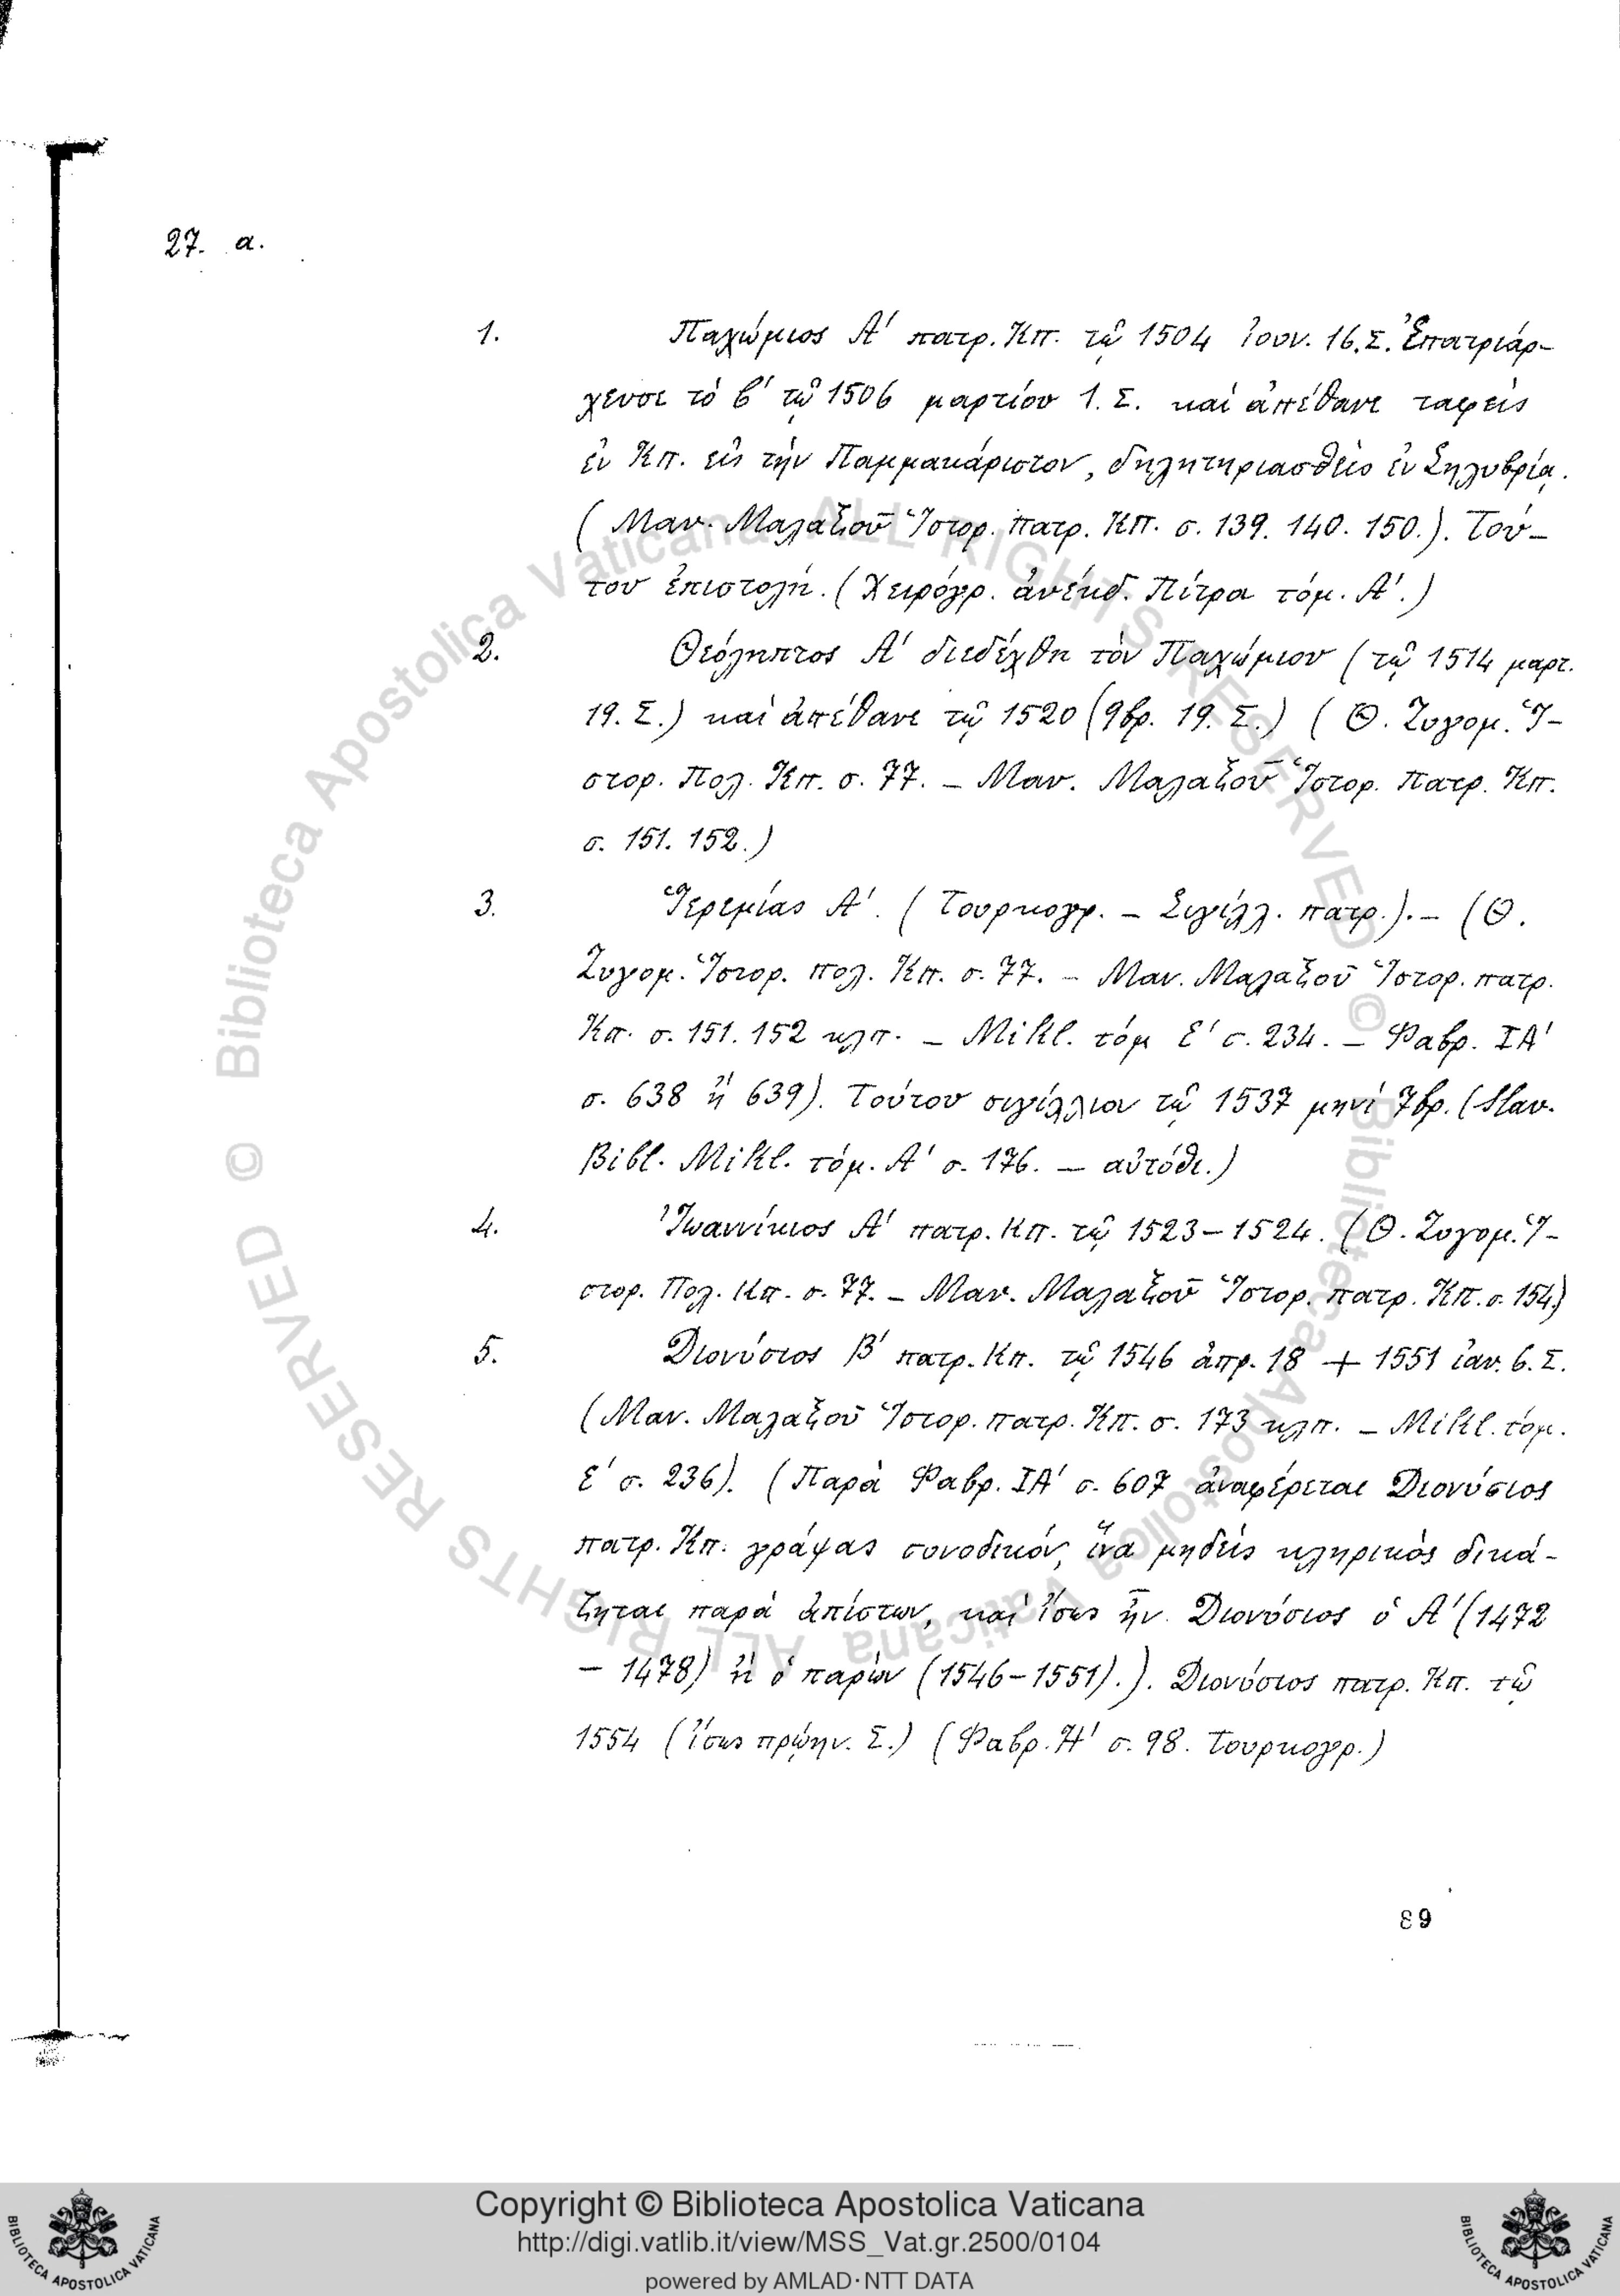 27. α.
1. Παχώμιος Α′ πατρ. Κπ. τῷ 1504 ἰουν. 16. Σ. Ἐπατριάρ-
χευσε τὸ β′ τῷ 1506 μαρτίου 1. Σ. καὶ ἀπέθανε ταφεὶς
ἐν Κπ. εἰς τὴν Παμμακάριστον, δηλητηριασθεὶς ἐν Σηλυβρίᾳ.
(Μαν. Μαλαξοῦ Ἱστορ. πατρ. Κπ. σ. 139. 140. 150.). Τού-
του ἐπιστολή. (Χειρόγρ. ἀνέκδ. Πίτρα τόμ. Α′.)
2. Θεόληπτος Α′ διεδέχθη τὸν Παχώμιον (τῷ 1514 μαρτ.
19. Σ.) καὶ ἀπέθανε τῷ 1520 (9βρ. 19. Σ.) (Θ. Ζυγομ. Ἱ-
στορ. Πολ. Κπ. σ. 77. – Μαν. Μαλαξοῦ Ἱστορ. πατρ. Κπ.
σ. 151. 152.)
3. Ἱερεμίας Α′. (Τουρκογρ. – Σιγίλλ. πατρ.). – (Θ.
Ζυγομ. Ἱστορ. πολ. Κπ. σ. 77. – Μαν. Μαλαξοῦ Ἱστορ. πατρ.
Κπ. σ. 151. 152 κλπ. – Mikl. τόμ Ε′ σ. 234. – Φαβρ. ΙΑ′
σ. 638 ἢ 639). Τούτου σιγίλλιον τῷ 1537 μηνὶ 7βρ. (Slav.
Bibl. Mikl. τόμ. Α′ σ. 176. – αὐτόθι.)
4. Ἰωαννίκιος Α′ πατρ. Κπ. τῷ 1523–1524. (Θ. Ζυγομ. Ἱ-
στορ. Πολ. Κπ. σ. 77. – Μαν. Μαλαξοῦ Ἱστορ. πατρ. Κπ. σ. 154.)
5. Διονύσιος Β′ πατρ. Κπ. τῷ 1546 ἀπρ. 18 + 1551 ἰαν. 6. Σ.
(Μαν. Μαλαξοῦ Ἱστορ. πατρ. Κπ. σ. 173 κλπ. – Mikl. τόμ.
Ε′ σ. 236). (Παρὰ Φαβρ. ΙΑ′ σ. 607 ἀναφέρεται Διονύσιος
πατρ. Κπ. γράψας συνοδικόν, ἵνα μηδεὶς κληρικὸς δικά-
ζηται παρὰ ἀπίστων, καὶ ἴσως ἦν Διονύσιος ὁ Α′ (1472
– 1478) ἢ ὁ παρὼν (1546–1551).). Διονύσιος πατρ. Κπ. τῷ
1554 (ἴσως πρώην. Σ.) (Φαβρ. Η′ σ. 98. Τουρκογρ.)
89
© Biblioteca Apostolica Vaticana ALL RIGHTS RESERVED © Biblioteca Apostolica Vaticana ALL RIGHTS RESERVED
Copyright © Biblioteca Apostolica Vaticana
http://digi.vatlib.it/view/MSS_Vat.gr.2500/0104
powered by AMLAD·NTT DATA
BIBLIOTECA APOSTOLICA VATICANA
BIBLIOTECA APOSTOLICA VATICANA